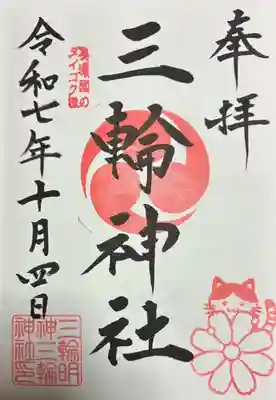 奉拝
三輪神社
ダイコク様
令和七年十月四日
三輪明
神三輪
神社印